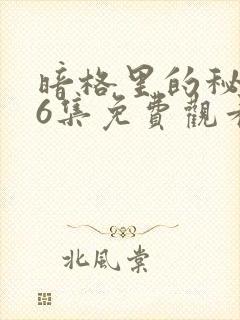 暗格里的秘
6集免費觀看
北風棠